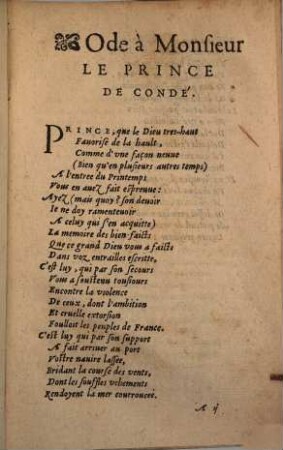 Ode à Monſieur
LE PRINCE
DE CONDÉ.
PRINCE, que le Dieu tres-haut
Fauoriſe de la hault,
Comme d'vne façon neuue
(Bien qu'en pluſieurs autres temps)
A l'entree du Printemps
Vous en auez fait eſpreuue:
Ayez (mais quoy? ſon deuoir
Ie ne doy ramenteuoir
A celuy qui s'en acquitte)
La memoire des bien faicts
Que ce grand Dieu vous a faicts
Dans voz entrailles eſcritte,
C'eſt luy, qui par ſon ſecours
Vous a ſouſtenu touſiours
Encontre la violence
De ceux, dont l'ambition
Et cruelle extorſion
Foulloit les peuples de France.
C'eſt luy qui par ſon ſupport
A fait arriuer au port
Voſtre nauire laſſee,
Bridant la courſe des vents,
Dont les ſouffles vehements
Rendoyent la mer courroucee.
A ij